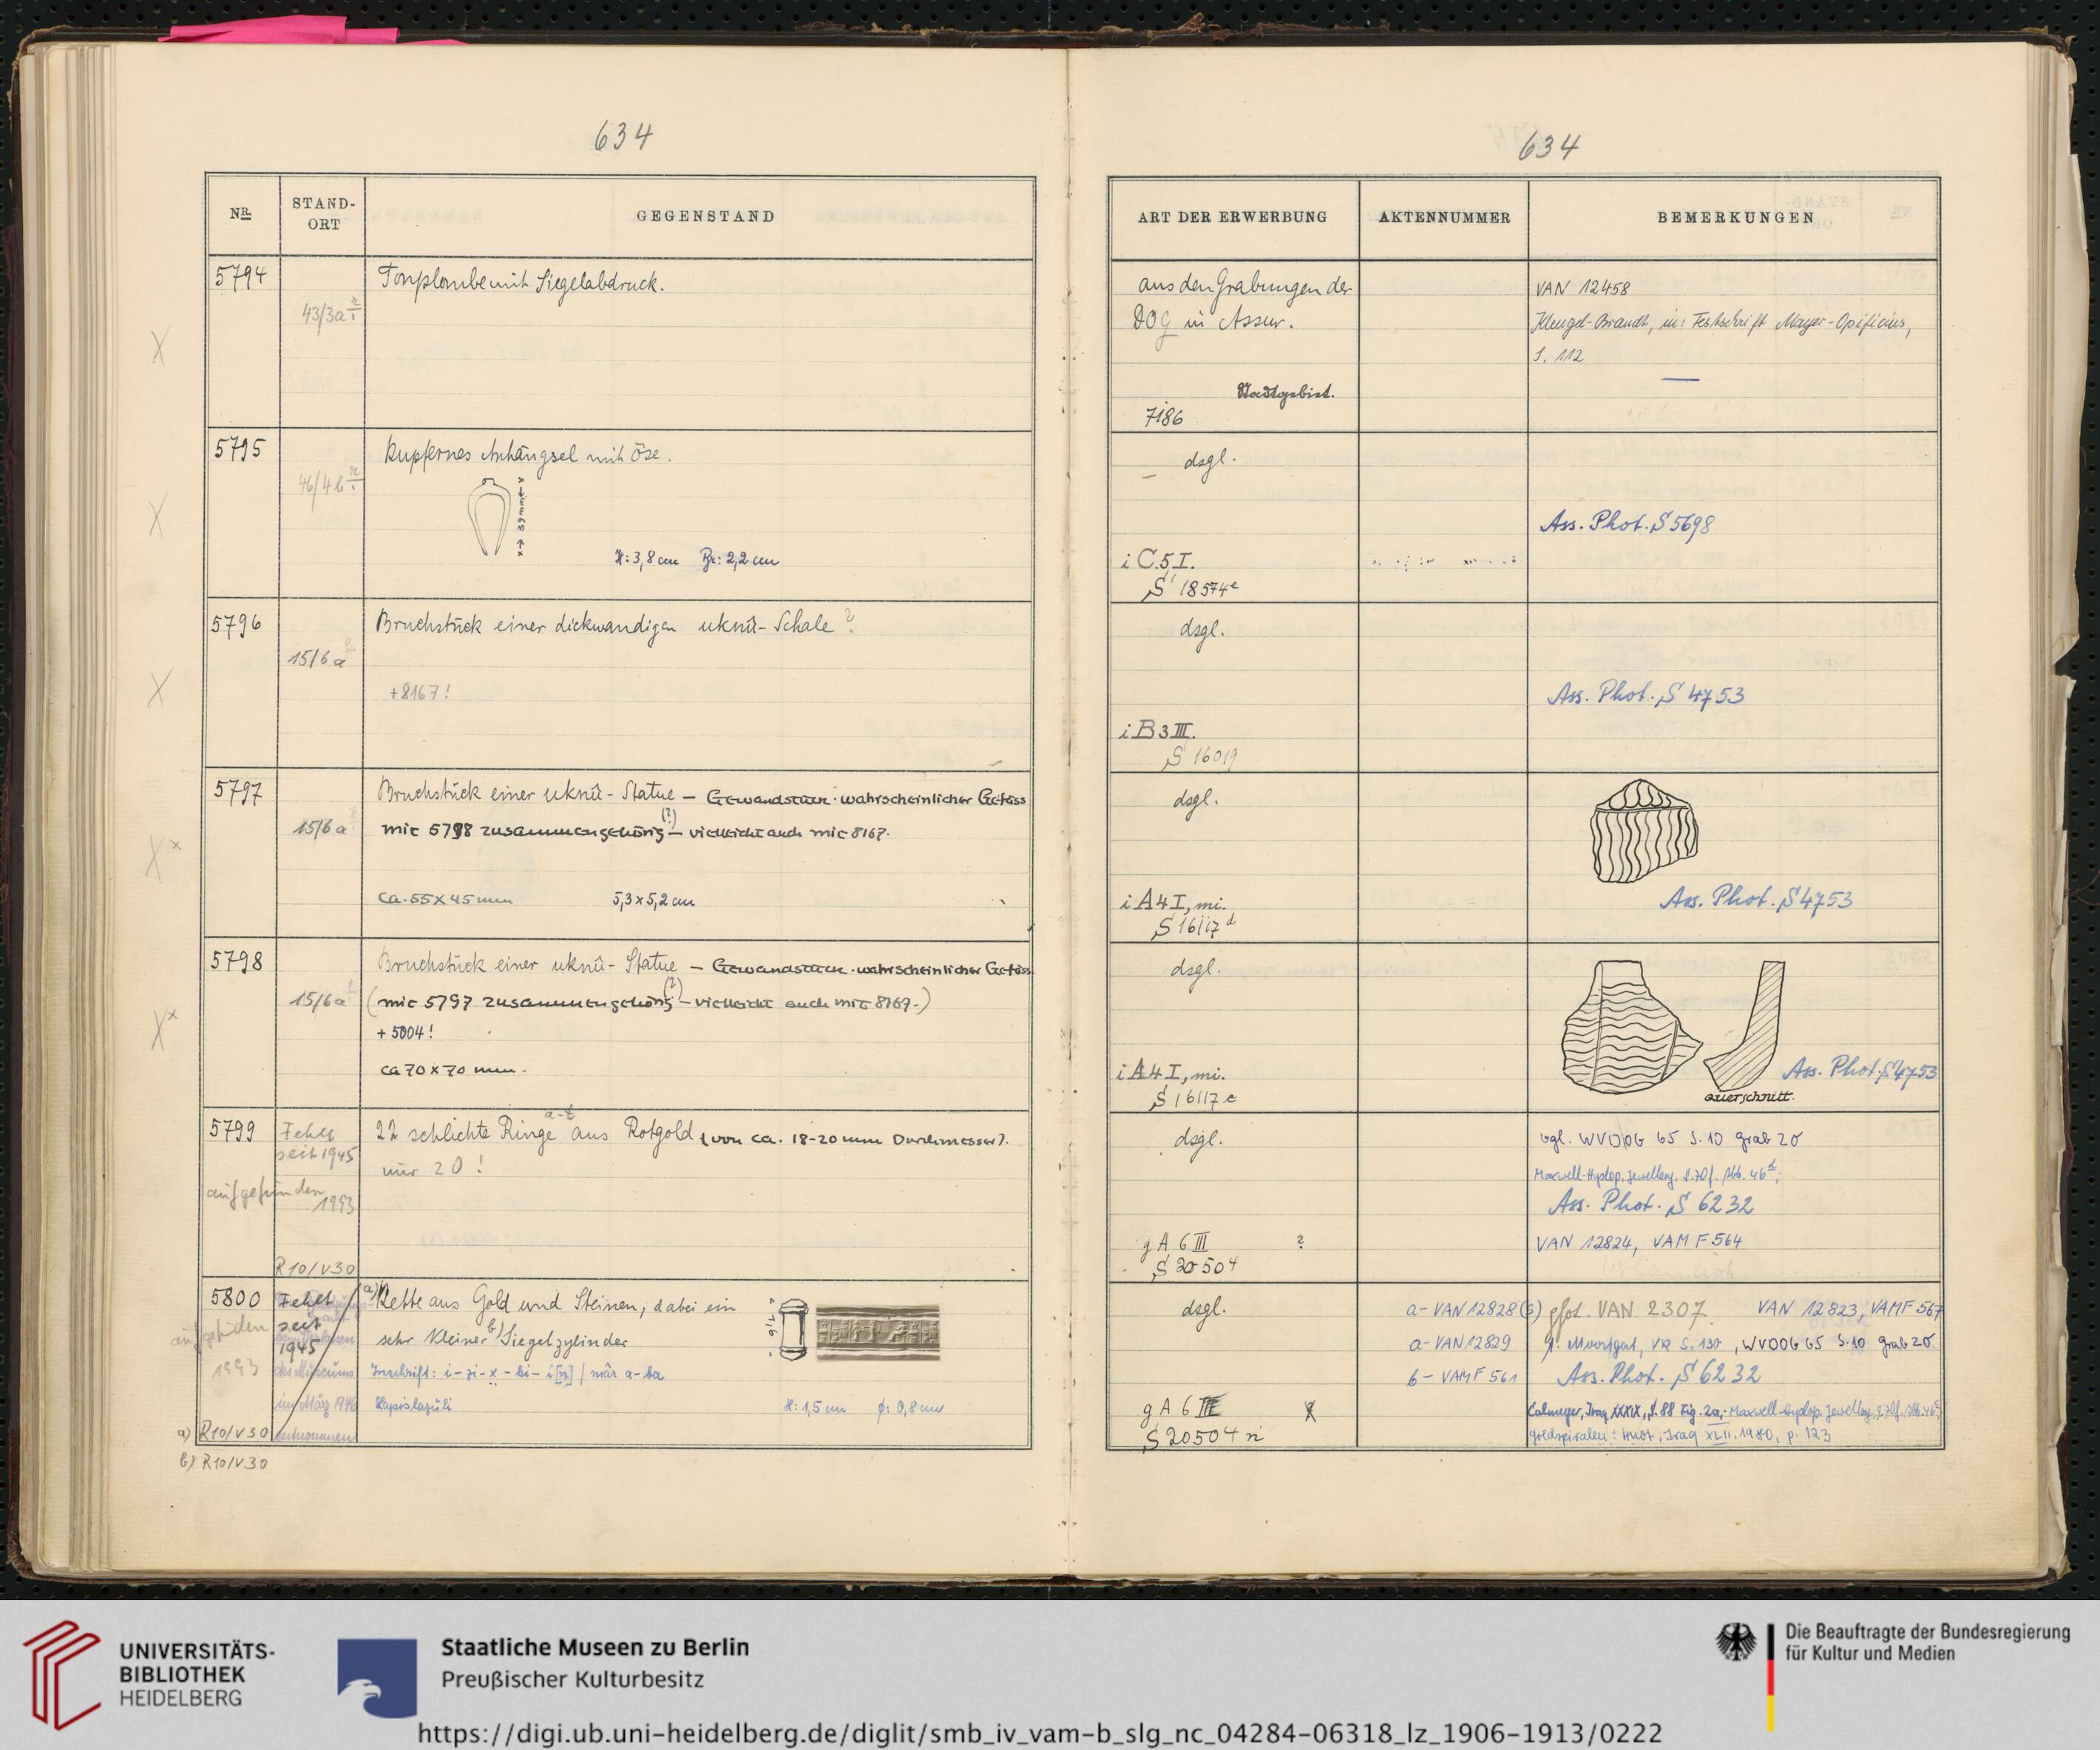 634
NR.
STAND-
ORT
GEGENSTAND
5794
43/3a
Tonplombe mit Siegelabdruck.
5795
46/4b
Kupfernes Anhängsel mit Öse.
39 mm
H: 3,8 cm Br: 2,2 cm
5796
15/6a
Bruchstück einer dickwandigen uknû-Schale ?
+8167!
5797
15/6a
Bruchstück einer uknû-Statue – Gewandstück · wahrscheinlicher Gefäss
mit 5798 zusammengehörig (?) – vielleicht auch mit 8167.
ca. 55 x 45 mm 5,3 x 5,2 cm
5798
15/6a
Bruchstück einer uknû-Statue – Gewandstück · wahrscheinlicher Gefäss
(mit 5797 zusammengehörig (?) – vielleicht auch mit 8167.)
+ 5004!
ca 70 x 70 mm.
5799
Fehlt
seit 1945
aufgefunden
1993
R10/V30
a-t
22 schlichte Ringe aus Rotgold (von ca. 18-20 mm Durchmesser).
nur 20!
5800
Fehlt
seit
1945
1993
des Museums
im März 1946
entnommen
a) R10/V30
b) R10/V30
a) Kette aus Gold und Steinen, dabei ein
sehr kleiner b) Siegelzylinder
Inschrift: i-zi-x-ki-i[n] / mâr a-ba
Lapislazuli H: 1,5 cm ϕ: 0,8 cm
634
ART DER ERWERBUNG
AKTENNUMMER
BEMERKUNGEN
aus den Grabungen der
DOG in Assur.
Stadtgebiet.
7186
VAN 12458
Klengel-Brandt, in: Festschrift Mayer-Opificius,
S. 112
dsgl.
i C.5 I.
S 18574e
Ass. Phot. S 5698
dsgl.
i B 3 III.
S 16019
Ass. Phot. S 4753
dsgl.
i A 4 I, mi.
S 16117 d
Ass. Phot. S 4753
dsgl.
i A 4 I, mi.
S 16117 c
Ass. Phot. S 4753
Querschnitt.
dsgl.
g A 6 III ?
S 20504
vgl. WVDOG 65 S. 10 Grab 20
Maxwell-Hyslop, Jewellery, S. 70f. Abb. 46
Ass. Phot. S 6232
VAN 12824, VAM F 564
dsgl.
g A 6 III
S 20504 n
a - VAN 12828 (S)
a - VAN 12829
b - VAM F 561
phot. VAN. 2307. VAN 12823, VAMF 567
Moortgat, VR S. 130, WVDOG 65 S. 10 Grab 20
Ass. Phot. S 6232
Calmeyer, Iraq XXXIX, S. 88 Fig. 2a; Maxwell-Hyslop, Jewellery, S. 70f. Abb. 46
Goldspiralen: Huot, Iraq XLII, 1980, p. 123
UNIVERSITÄTS-
BIBLIOTHEK
HEIDELBERG
Staatliche Museen zu Berlin
Preußischer Kulturbesitz
Die Beauftragte der Bundesregierung
für Kultur und Medien
https://digi.ub.uni-heidelberg.de/diglit/smb_iv_vam-b_slg_nc_04284-06318_lz_1906-1913/0222